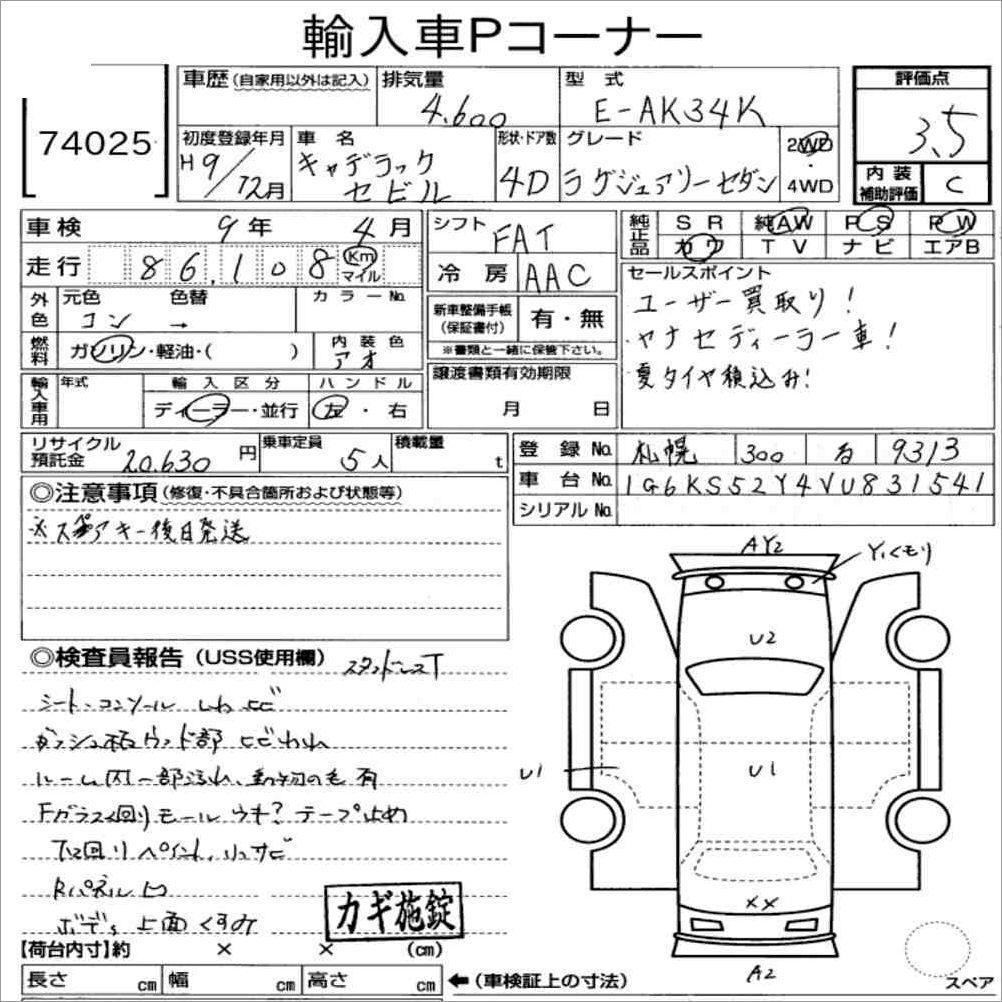 輸入車Pコーナー
74025
車歴(自家用以外は記入) 排気量 4.600 型式 E-AK34K
評価点 3.5
内装補助評価 C
初度登録年月 H9/12月 車名 キャデラック セビル 形状・ドア数 4D グレード ラグジュアリーセダン 2WD・4WD
車検 9年 4月 シフト FAT
純正品 SR 純AW PS PW
カワ TV ナビ エアB
走行 86,108 Km マイル 冷房 AAC
外色 元色 コン 色替 → カラーNo.
燃料 ガソリン・軽油・( ) 内装色 アオ
新車整備手帳(保証書付) 有・無
※書類と一緒に保管下さい。
セールスポイント
ユーザー買取り!
ヤナセディーラー車!
夏タイヤ積込み!
輸入車用 年式 輸入区分 ディーラー・並行 ハンドル 左・右
譲渡書類有効期限 月 日
リサイクル預託金 20.630円 乗車定員 5人 積載量 t
登録No. 札幌 300 9313
車台No. 1G6KS52Y4VU831541
シリアルNo.
◎注意事項(修復・不具合箇所および状態等)
※スペアキー後日発送
◎検査員報告(USS使用欄) スタッドレスT
シート・コンソール しわ ヒビ
ダッシュ板ウッド部 ヒビわれ
ルーム内一部汚れ、動物の毛有
Fガラス回りモールウキ?テープ止め
下回りペイント、小サビ
Rパネル凹
ボディ上面くすみ
カギ施錠
【荷台内寸】約 × × (cm)
長さ cm 幅 cm 高さ cm ←(車検証上の寸法)
AY2
Y1くもり
U2
U1
U1
XX
A2
スペア